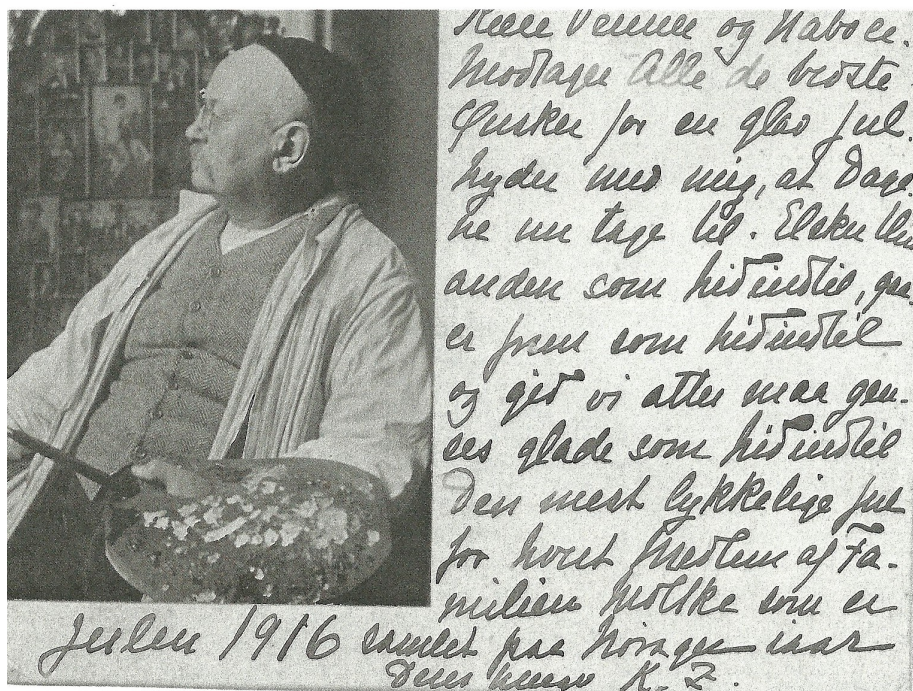 Kære Venner og Naboer.
Modtager Alle de bedste
Ønsker for en glad Jul.
Nyder med mig, at Dage
ne nu tage til. Elsker
anden som hidindtil,
er frem som hidindtil
og gid vi atter maa gen-
ses glade som hidindtil
Den mest lykkelige Jul
for hvert Medlem af Fa-
milien Moltke som er
samlet paa Nörager iaar
Julen 1916
Deres K. Z.